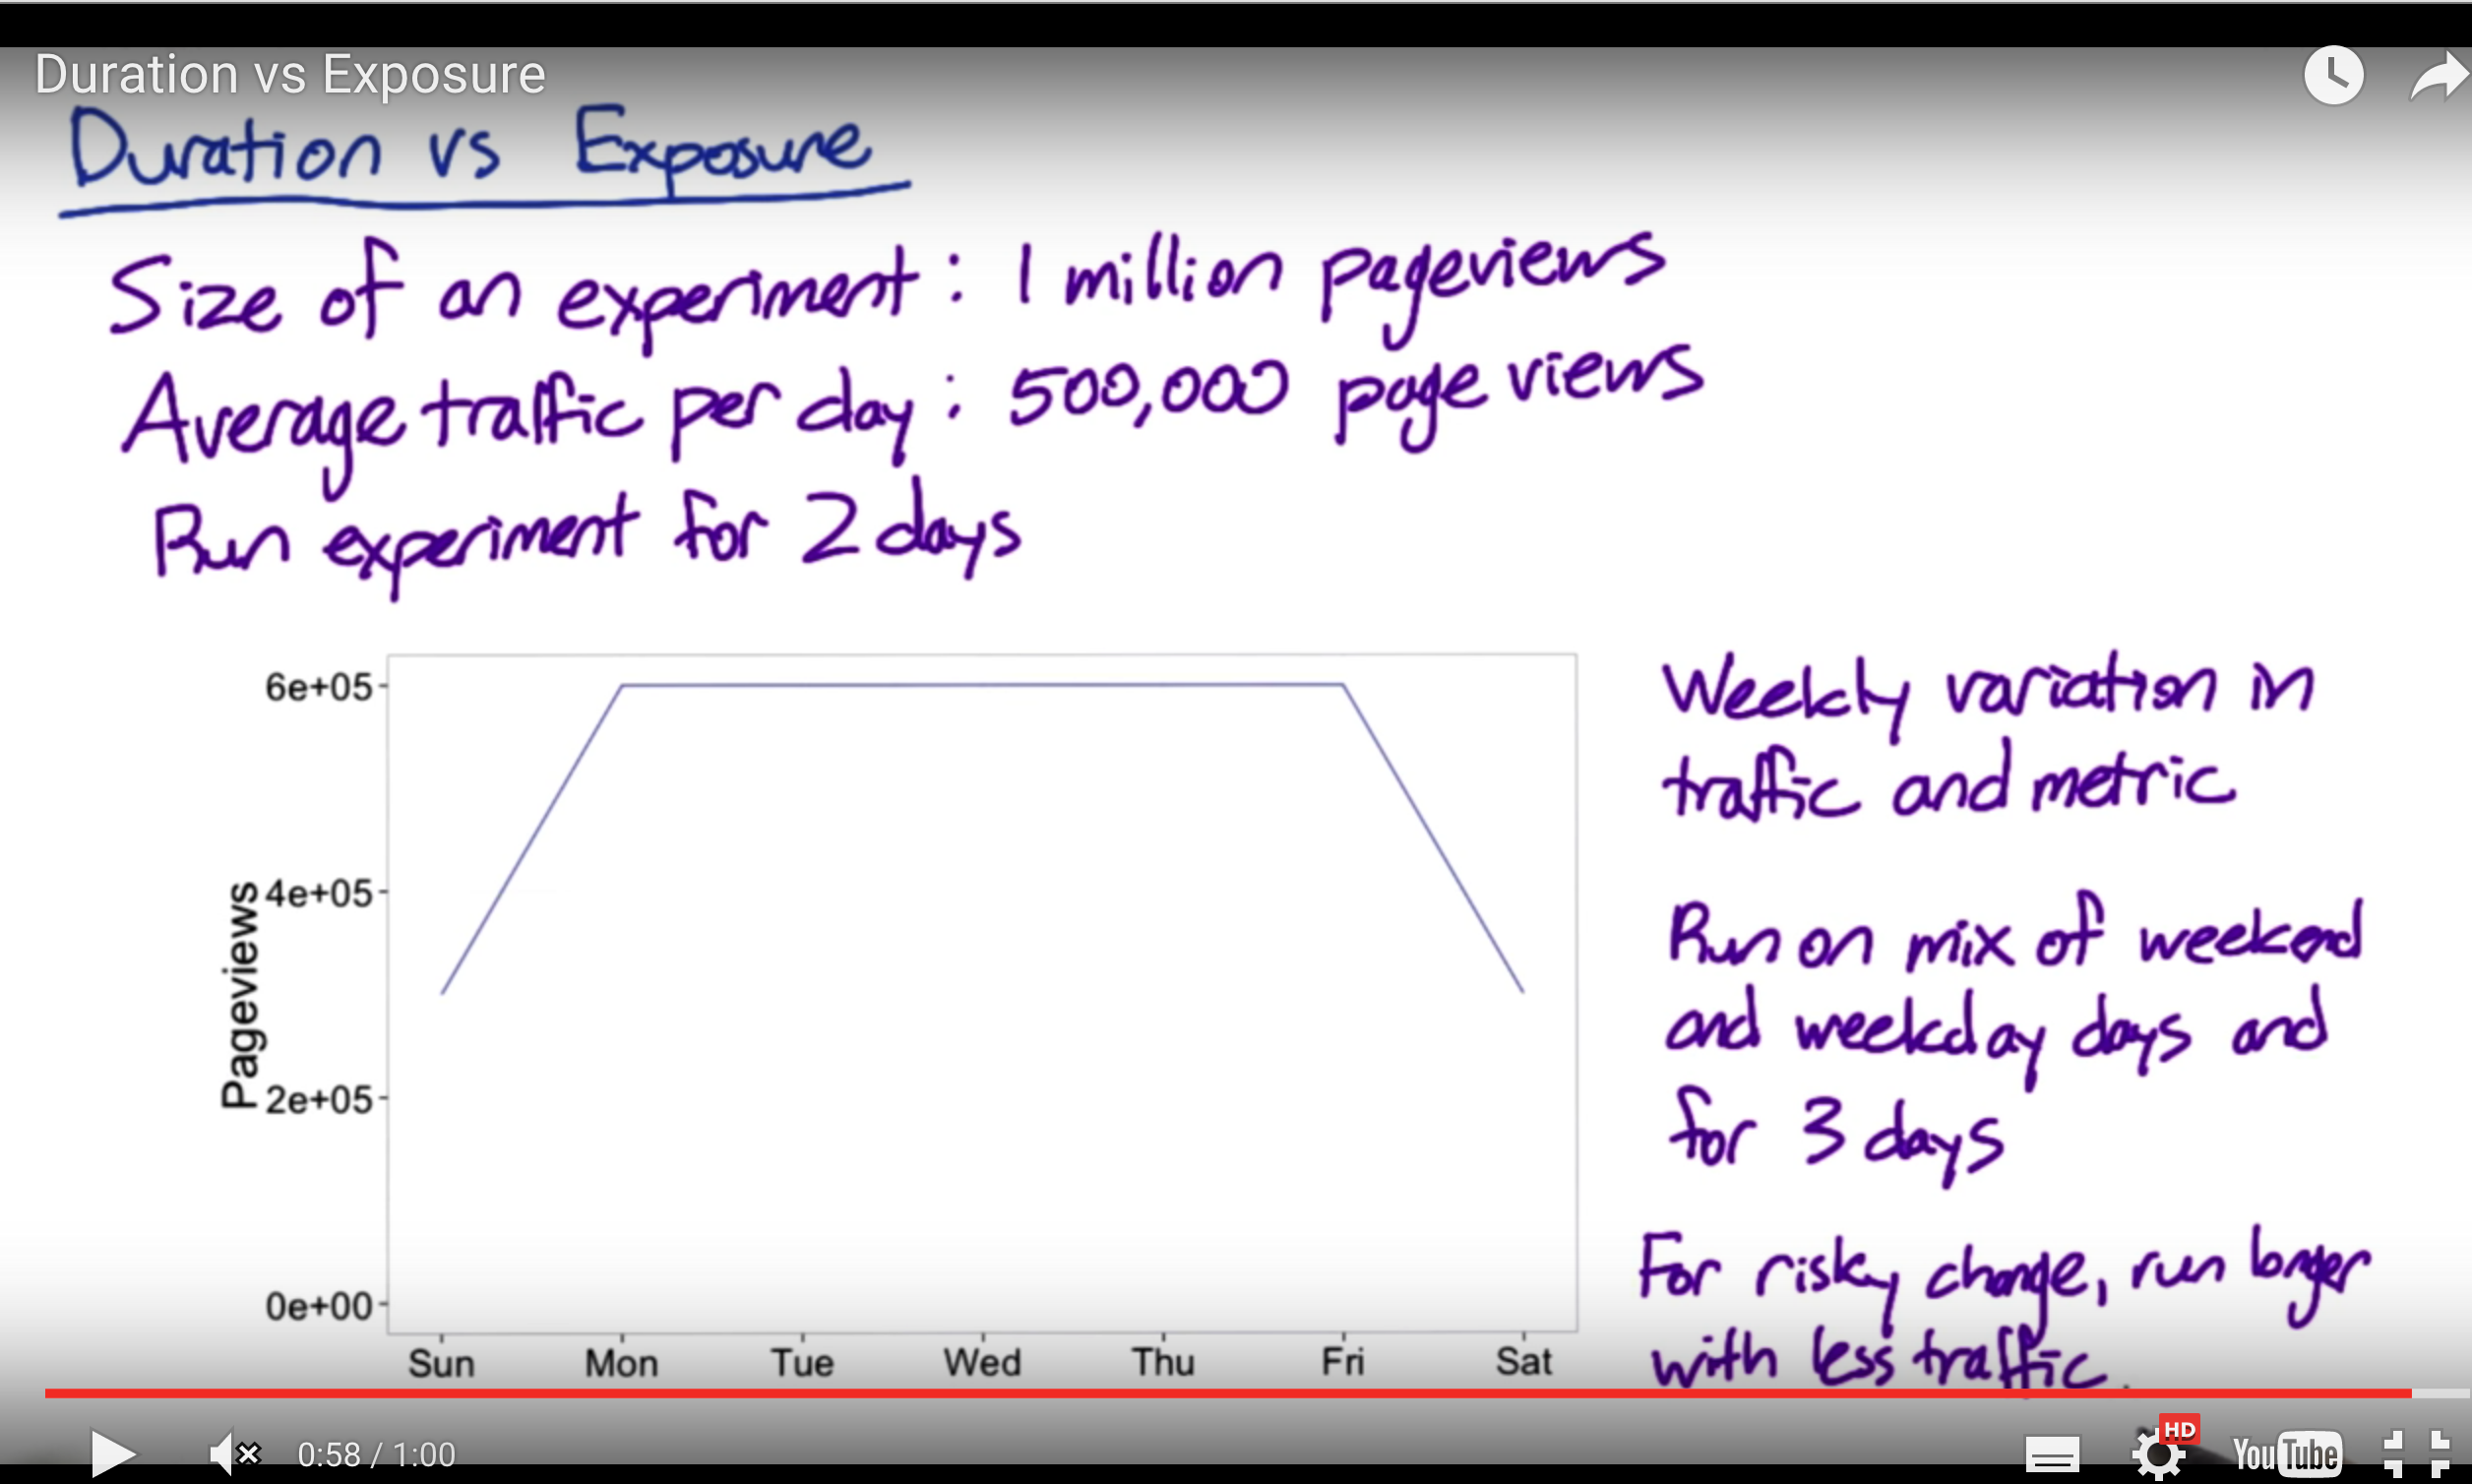 Duration vs Exposure
Duration vs Exposure
Size of an experiment: 1 million pageviews
Average traffic per day: 500,000 page views
Run experiment for 2 days
Pageviews
6e+05
4e+05
2e+05
0e+00
Sun Mon Tue Wed Thu Fri Sat
Weekly variation in
traffic and metric
Run on mix of weekend
and weekday days and
for 3 days
For risky change, run longer
with less traffic.
0:58 / 1:00
HD
YouTube